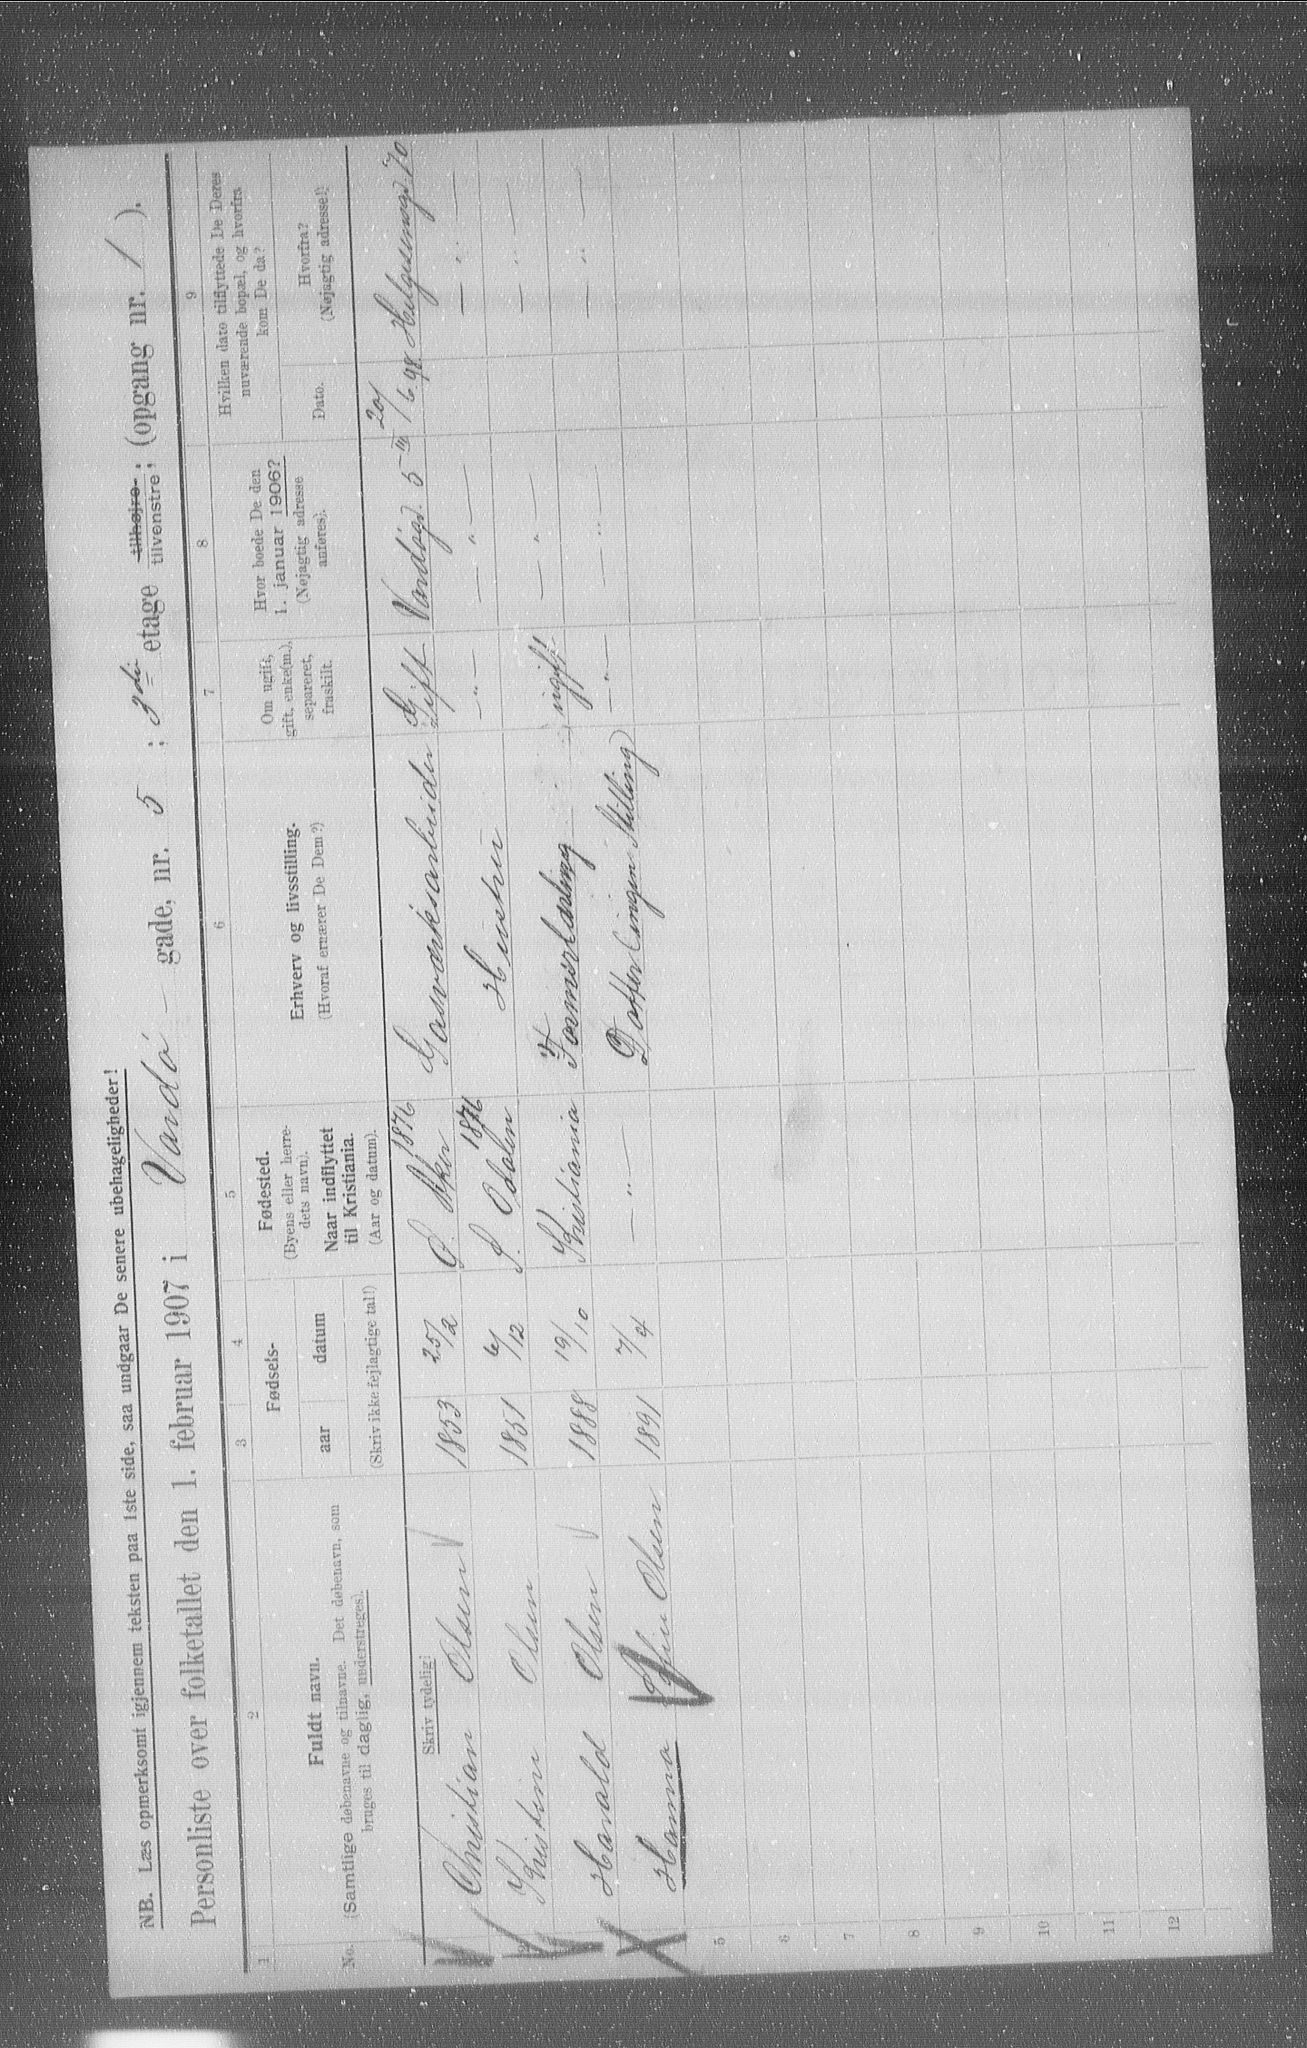 NB. Læs opmerksomt igjennem teksten paa 1ste side, saa undgaar De senere ubehageligheder!
Personliste over folketallet den 1. februar 1907 i Vandö - gade, nr. 5 ; 3die etage tilhøjre, tilvenstre; (opgang nr. 1 ).
1 2 3 4 5 6 7 8 9
No.
Fuldt navn.
(Samtlige døbenavne og tilnavne. Det døbenavn, som
bruges til daglig, understreges).
Fødsels-
aar datum
(Skriv ikke fejlagtige tal!)
Fødested.
(Byens eller herre-
dets navn).
Naar indflyttet
til Kristiania.
(Aar og datum).
Erhverv og livsstilling.
(Hvoraf ernærer De Dem?)
Om ugift,
gift, enke(m.),
separeret,
fraskilt.
Hvor boede De den
1. januar 1906?
(Nøjagtig adresse
anføres).
Hvilken dato tilflyttede De Deres
nuværende bopæl, og hvorfra
kom De da?
Dato.
Hvorfra?
(Nøjagtig adresse!)
Skriv tydelig!
Christian Olsen 1853 25/2 Ø. Aker 1876 Gasværksarbeider Gift Vandögd. 5 III 20/6 98 Helgesensgd. 70
2 Kristine Olsen 1851 6/12 S. Odalen 1876 Hustru — „ — — „ — — „ —
Harald Olsen 1888 19/10 Kristiania Formerlærling ugift — „ — — „ —
Hanna Olsen 1891 7/4 — „ — Datter (ingen Stilling) — „ — — „ — — „ —
5
6
7
8
9
10
11
12